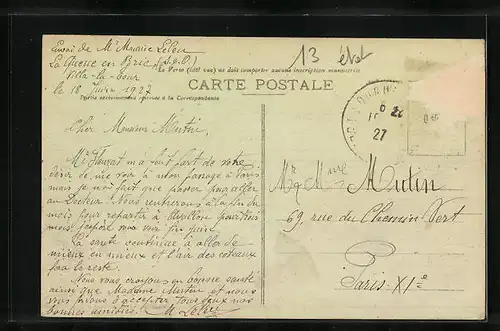 Envoi de Mr Maurice Leleu
La Queue en Brie (S. & O.)
Villa-la-
le 18 Juin 1927
Le Verso (fait vue) ne doit comporter aucune inscription manuscrite
CARTE POSTALE
Partie exclusivement réservée à la Correspondance
13
Cher Monsieur Mutin,
Mr m'a fait part de votre
désir de me voir à mon passage à Paris
mais je n'ai fait que passer pour aller
au Docteur. Nous rentrerons à la fin du
mois pour repartir à pour trois
mois j'espère vous voir fin juin.
La santé continue à aller de
mieux en mieux et l'air des coteaux
fera le reste.
Nous vous croyons en bonne santé
ainsi que Madame Mutin et nous
vous prions d'accepter tous deux nos
bonnes amitiés. M. Leleu
27
Mr & Mme Mutin
69, rue du Chemin Vert
Paris-XIe